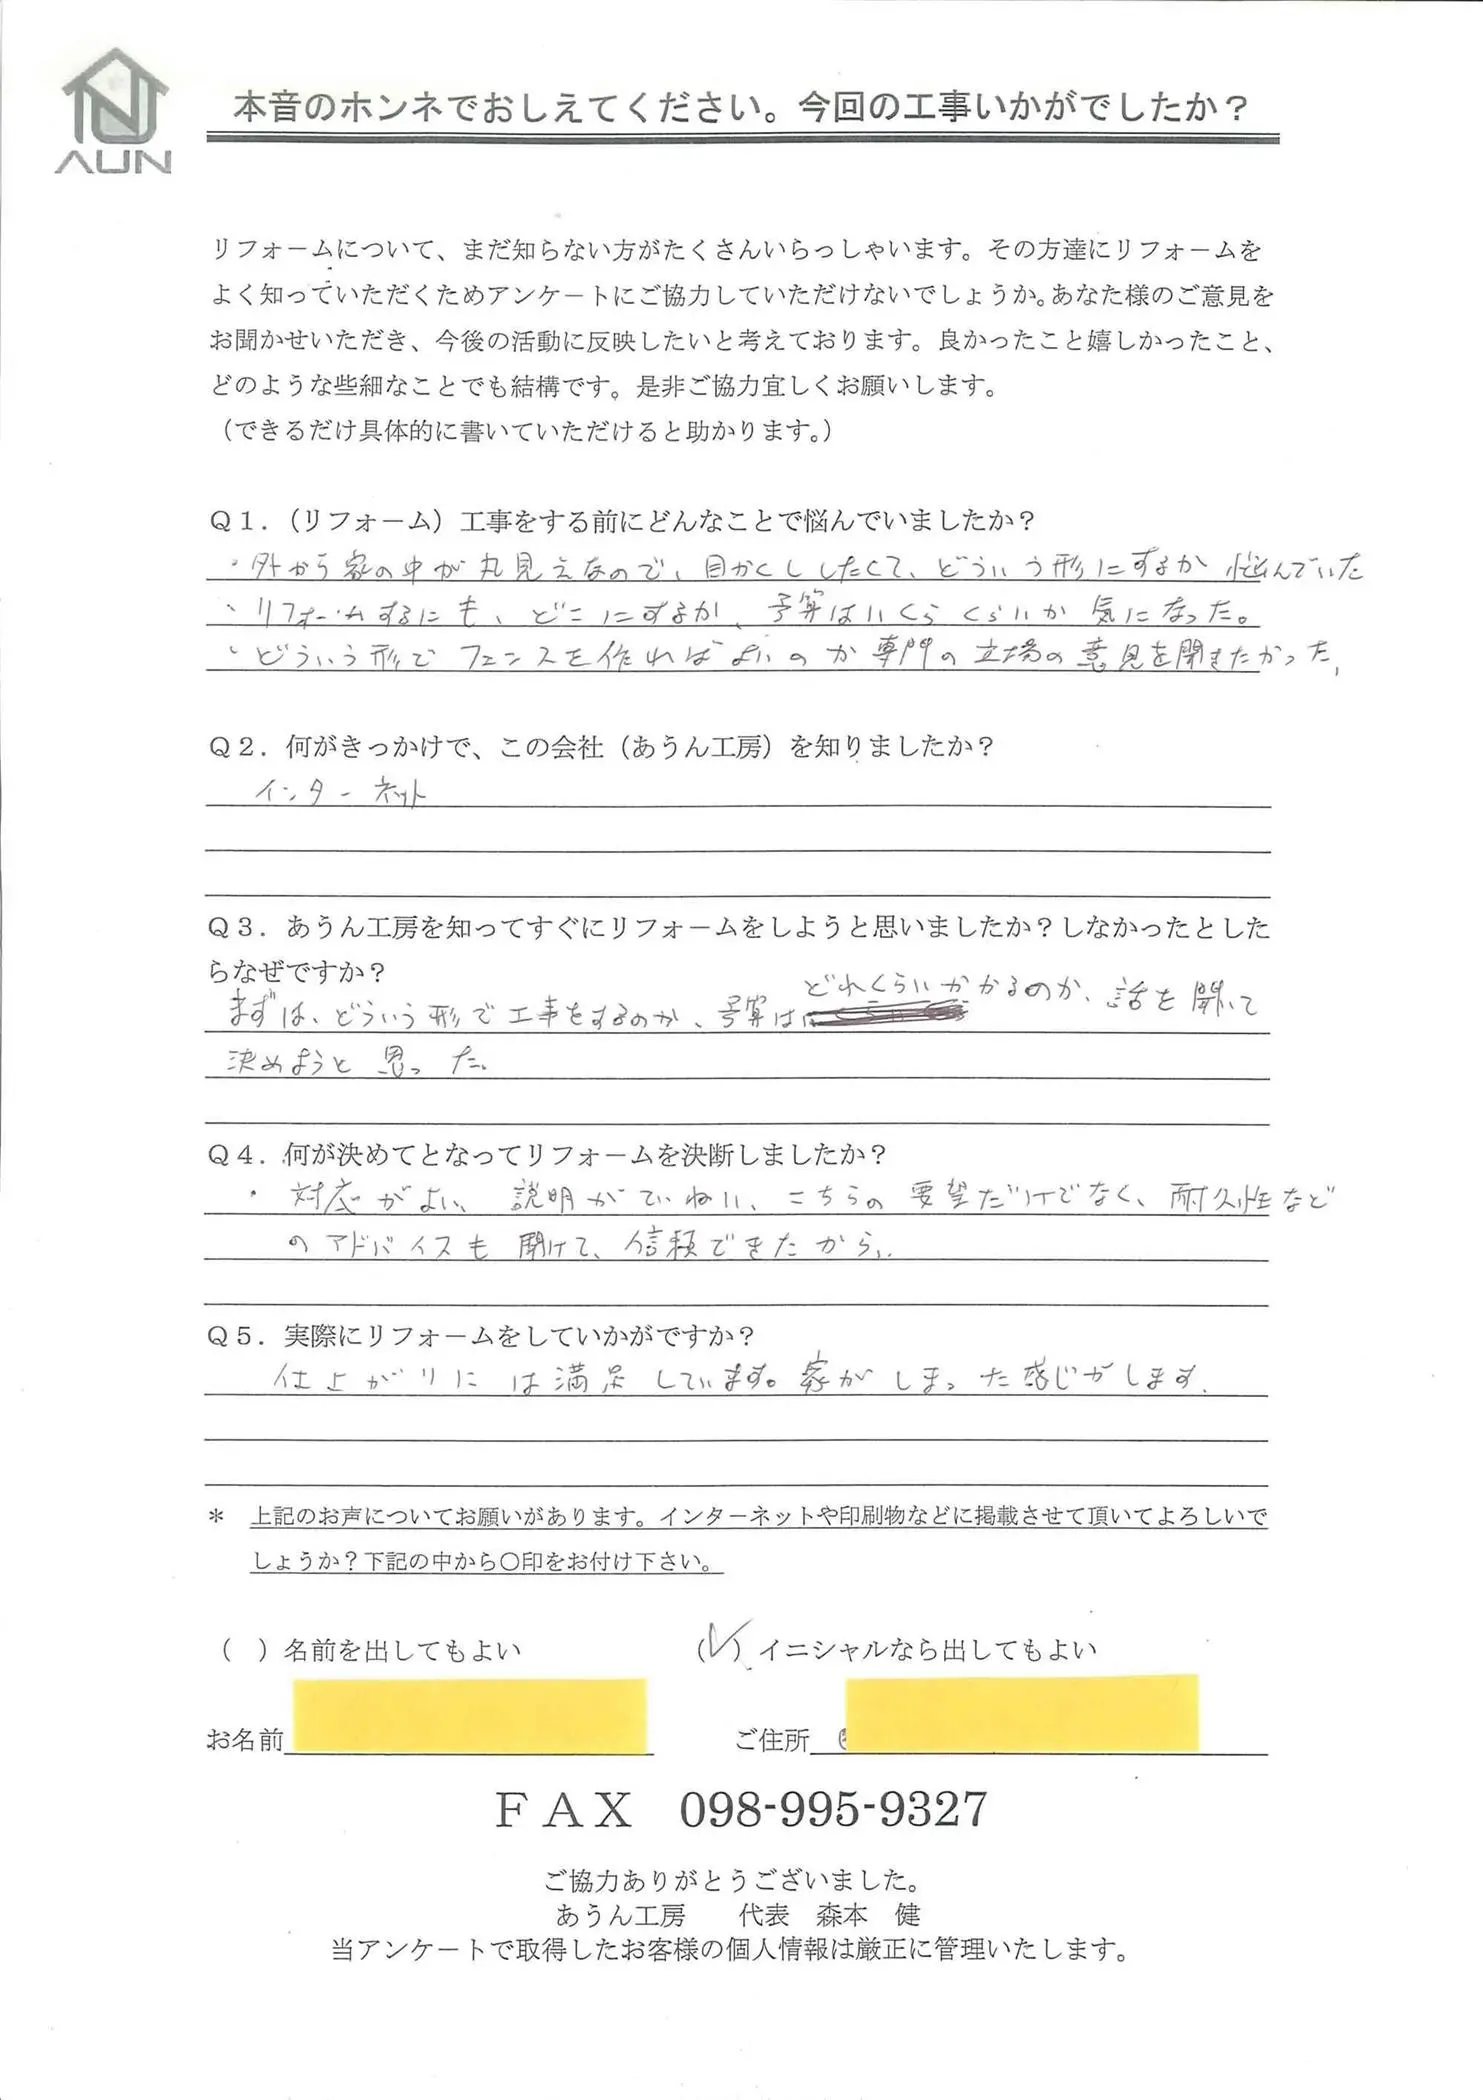 AUN
本音のホンネでおしえてください。今回の工事いかがでしたか？
リフォームについて、まだ知らない方がたくさんいらっしゃいます。その方達にリフォームを
よく知っていただくためアンケートにご協力していただけないでしょうか。あなた様のご意見を
お聞かせいただき、今後の活動に反映したいと考えております。良かったこと嬉しかったこと、
どのような些細なことでも結構です。是非ご協力宜しくお願いします。
（できるだけ具体的に書いていただけると助かります。）
Ｑ１．（リフォーム）工事をする前にどんなことで悩んでいましたか？
・外から家の中が丸見えなので、目かくししたくて、どういう形にするか悩んでいた
・リフォームするにも、どこにするか、予算はいくらくらいか気になった。
・どういう形でフェンスを作ればよいのか専門の立場の意見を聞きたかった、
Ｑ２．何がきっかけで、この会社（あうん工房）を知りましたか？
インターネット
Ｑ３．あうん工房を知ってすぐにリフォームをしようと思いましたか？しなかったとした
らなぜですか？
まずは、どういう形で工事をするのか、予算はどれくらいかかるのか、話を聞いて
決めようと思った。
Ｑ４．何が決めてとなってリフォームを決断しましたか？
・対応がよい、説明がていねい、こちらの要望だけでなく、耐久性など
のアドバイスも聞けて、信頼できたから、
Ｑ５．実際にリフォームをしていかがですか？
仕上がりには満足しています。家がしまった感じがします。
＊　上記のお声についてお願いがあります。インターネットや印刷物などに掲載させて頂いてよろしいで
しょうか？下記の中から○印をお付け下さい。
（　）名前を出してもよい　（✓）イニシャルなら出してもよい
お名前　ご住所
ＦＡＸ　098-995-9327
ご協力ありがとうございました。
あうん工房　代表　森本　健
当アンケートで取得したお客様の個人情報は厳正に管理いたします。